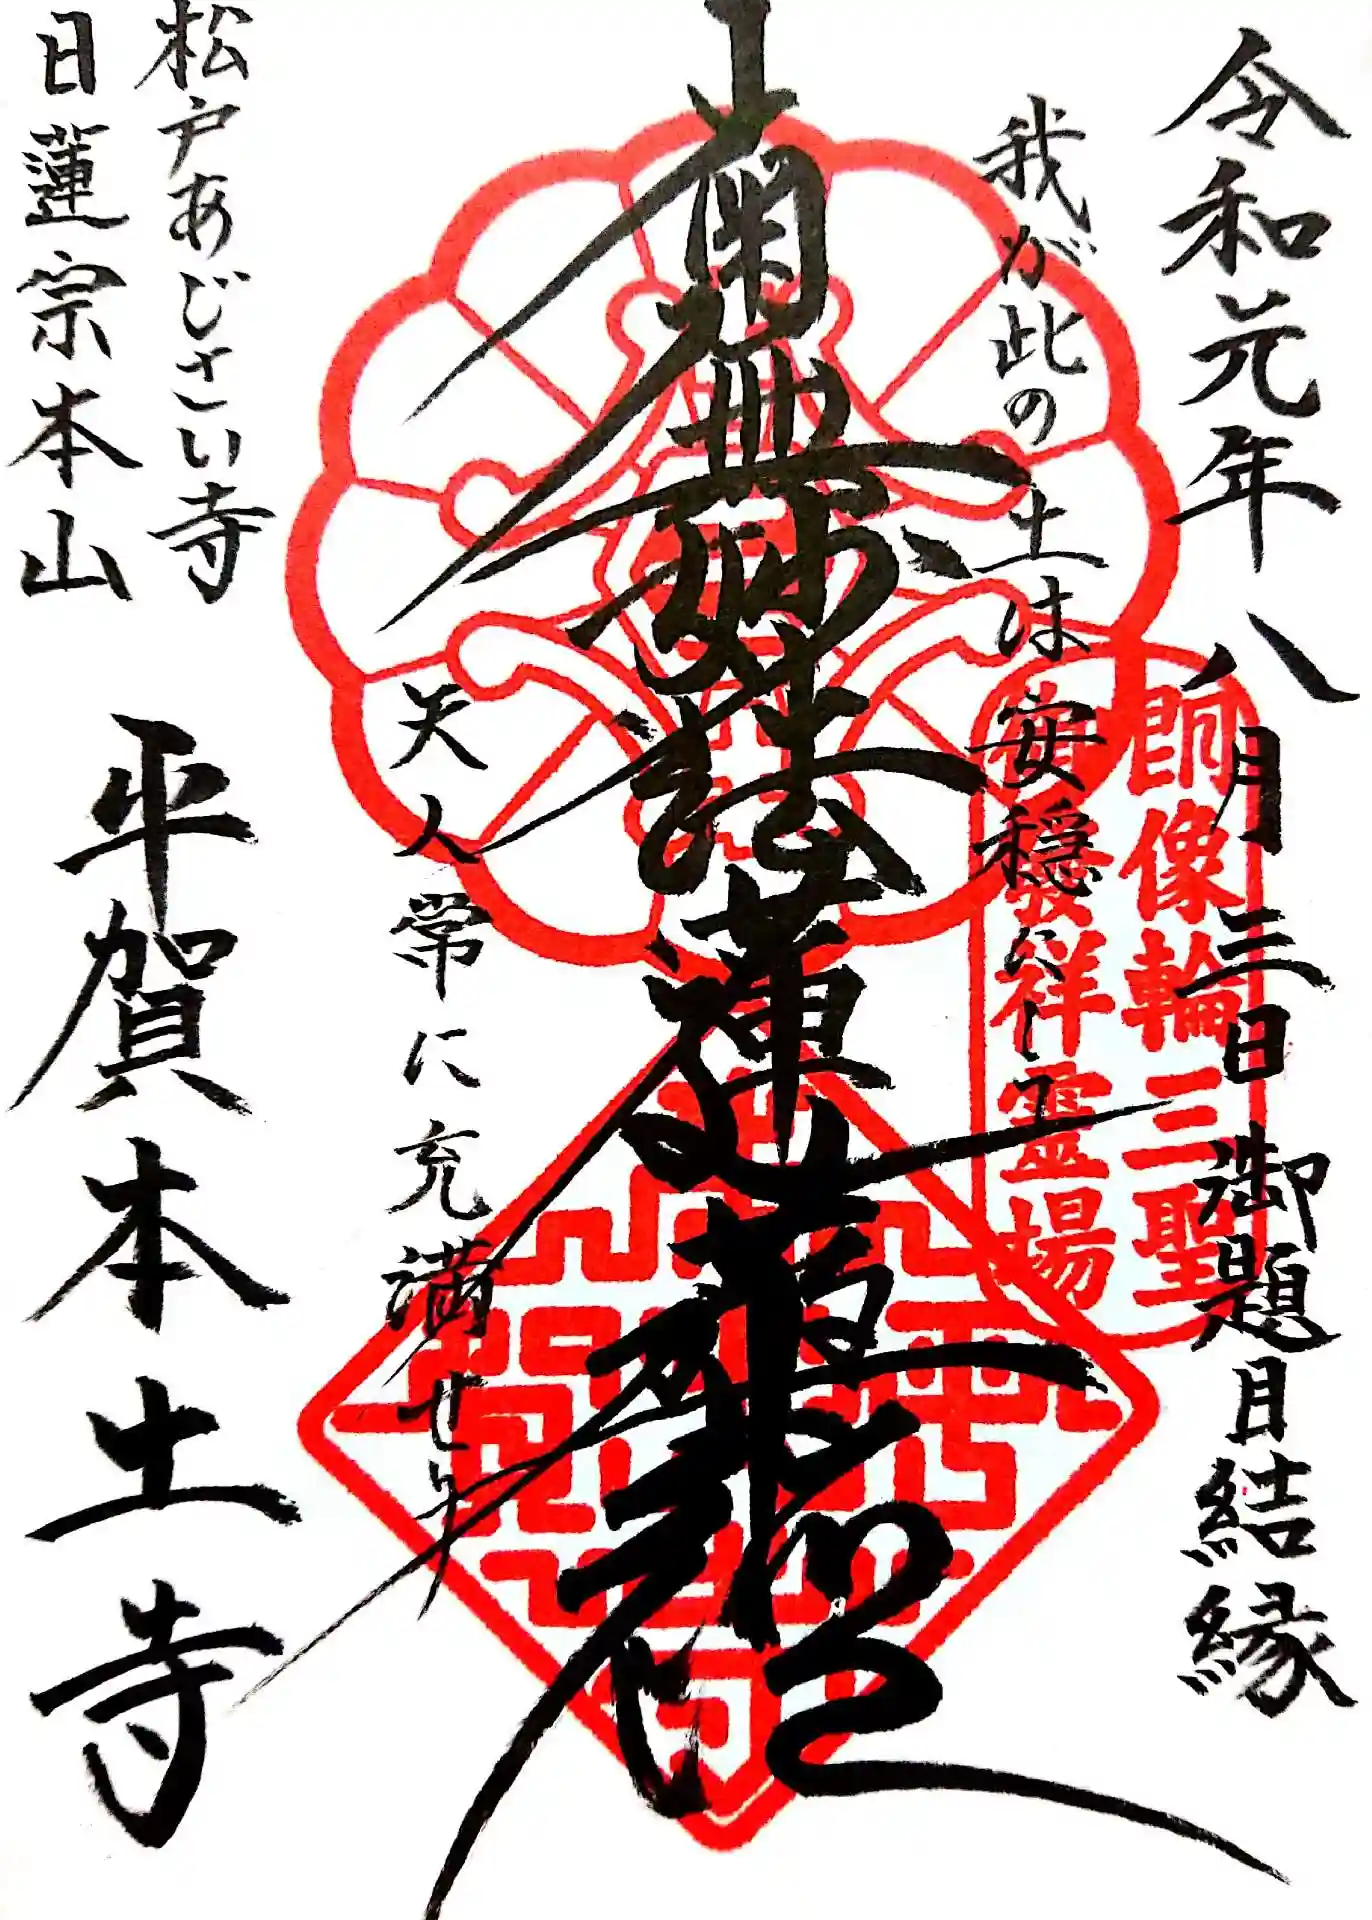 令和元年八月三日 御題目結縁
我が此の土は安穏にして
南無妙法蓮華経
天人常に充満せり
松戸あじさい寺
日蓮宗本山
平賀本土寺
像輪三聖
発祥霊場